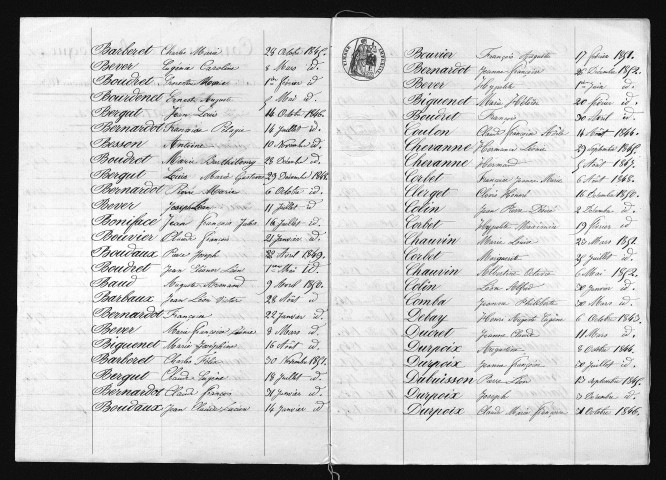 Barberet Charles Marie 24 Octobre 1845.
Bever Eugénie Caroline 6 Mars id.
Boudret Marie 1er février id
Bourdenet Ernest August Mai id.
Bergut Jean Louis 14 Octobre 1846.
Bernardot Françoise 14 juillet id.
Besson Antoine 10 Novembre id.
Boudrot Marie Barthélemy 28 Décembre id.
Bergut Marie 29 Décembre 1848
Bernardot Pierre Marie 6 Octobre id.
Bever Joseph 11 juillet id.
Boniface Jean François Jules 16 juillet id.
Bouvier Claude François 21 Janvier id.
Boudaux Pierre Joseph 22 Avril 1849.
Boudret Jean Léon 1er Mai id.
Baud Auguste Armand 9 Avril 1850.
Barbaux Jean Léon Victor 28 Août id.
Bernardot François 22 janvier id.
Bever Marie Françoise 8 Mars id.
Biguenet Marie Joséphine 16 Août id.
Barberet Charles Félix 30 Novembre 1851.
Bergut Claude Eugène 18 juillet id.
Bernardot Claude François 21 Janvier id.
Boudaux Jean Claude Lucien 14 janvier id
Bouvier François Auguste 17 février 1851.
Bernardot Jeanne Françoise 26 Décembre 1852.
Bever Hypolite 1er Juin id.
Biguenet Marie 20 février id.
Boudret François 30 Avril id.
Coulon Claude François 14 Août 1844.
Chevanne Hermance Louise 29 Septembre 1845.
Chevanne Hermand Août 1847.
Corbet Françoise Jeanne Marie 6 Août 1848.
Clerget Clovis Honoré 16 Décembre 1850.
Colin Jean Pierre Denis 2 Décembre id.
Corbet Hypolite 19 février id.
Chauvin Marie Louise 23 Mars 1851.
Corbet Marguerite 25 juillet id.
Chauvin Albertine Octavie 6 Mai 1852.
Colin Léon Alfred 30 janvier id.
Comba Jeanne Philiberte 30 Mars id.
Debay Henri Auguste Eugène 6 Octobre 1843.
Ducret Jeanne Claude 11 Mars id.
Durpoix Augustine 8 Octobre 1844.
Durpoix Jeanne Françoise 20 juillet id.
Dubuisson Pierre Léon 13 Septembre 1845.
Durpoix Joseph 3 Décembre id.
Durpoix Claude Marie François 21 Octobre 1846.